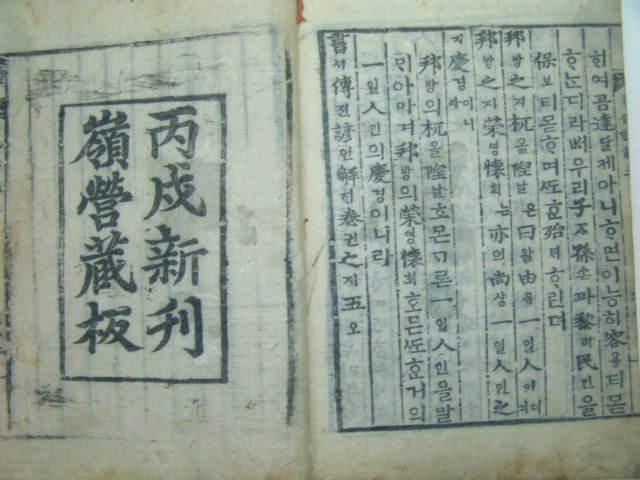 ᄒᆡ여곰達달케아니ᄒᆞ면이능히容용티몯
ᄒᆞᄂᆞᆫ디라ᄡᅥ우리子ᄌᆞ孫손과黎려民민을
保보티몯ᄒᆞ며ᄯᅩᄒᆞᆫ殆ᄐᆡᄒᆞ린뎌
邦방之지杌올隉날은曰왈由유一일人인이니
邦방之지榮영懷회ᄂᆞᆫ亦역尙샹一일人인之
지慶경이니라
邦방의杌올隉날홈ᄀᆞ론一일人인을말
ᄆᆡ아마며邦방의榮영懷회홈ᄯᅩᄒᆞᆫ거의
一일人인의慶경이니라
書셔傳젼諺언解ᄒᆡ卷권之지五오
丙戌新刊
嶺營藏板